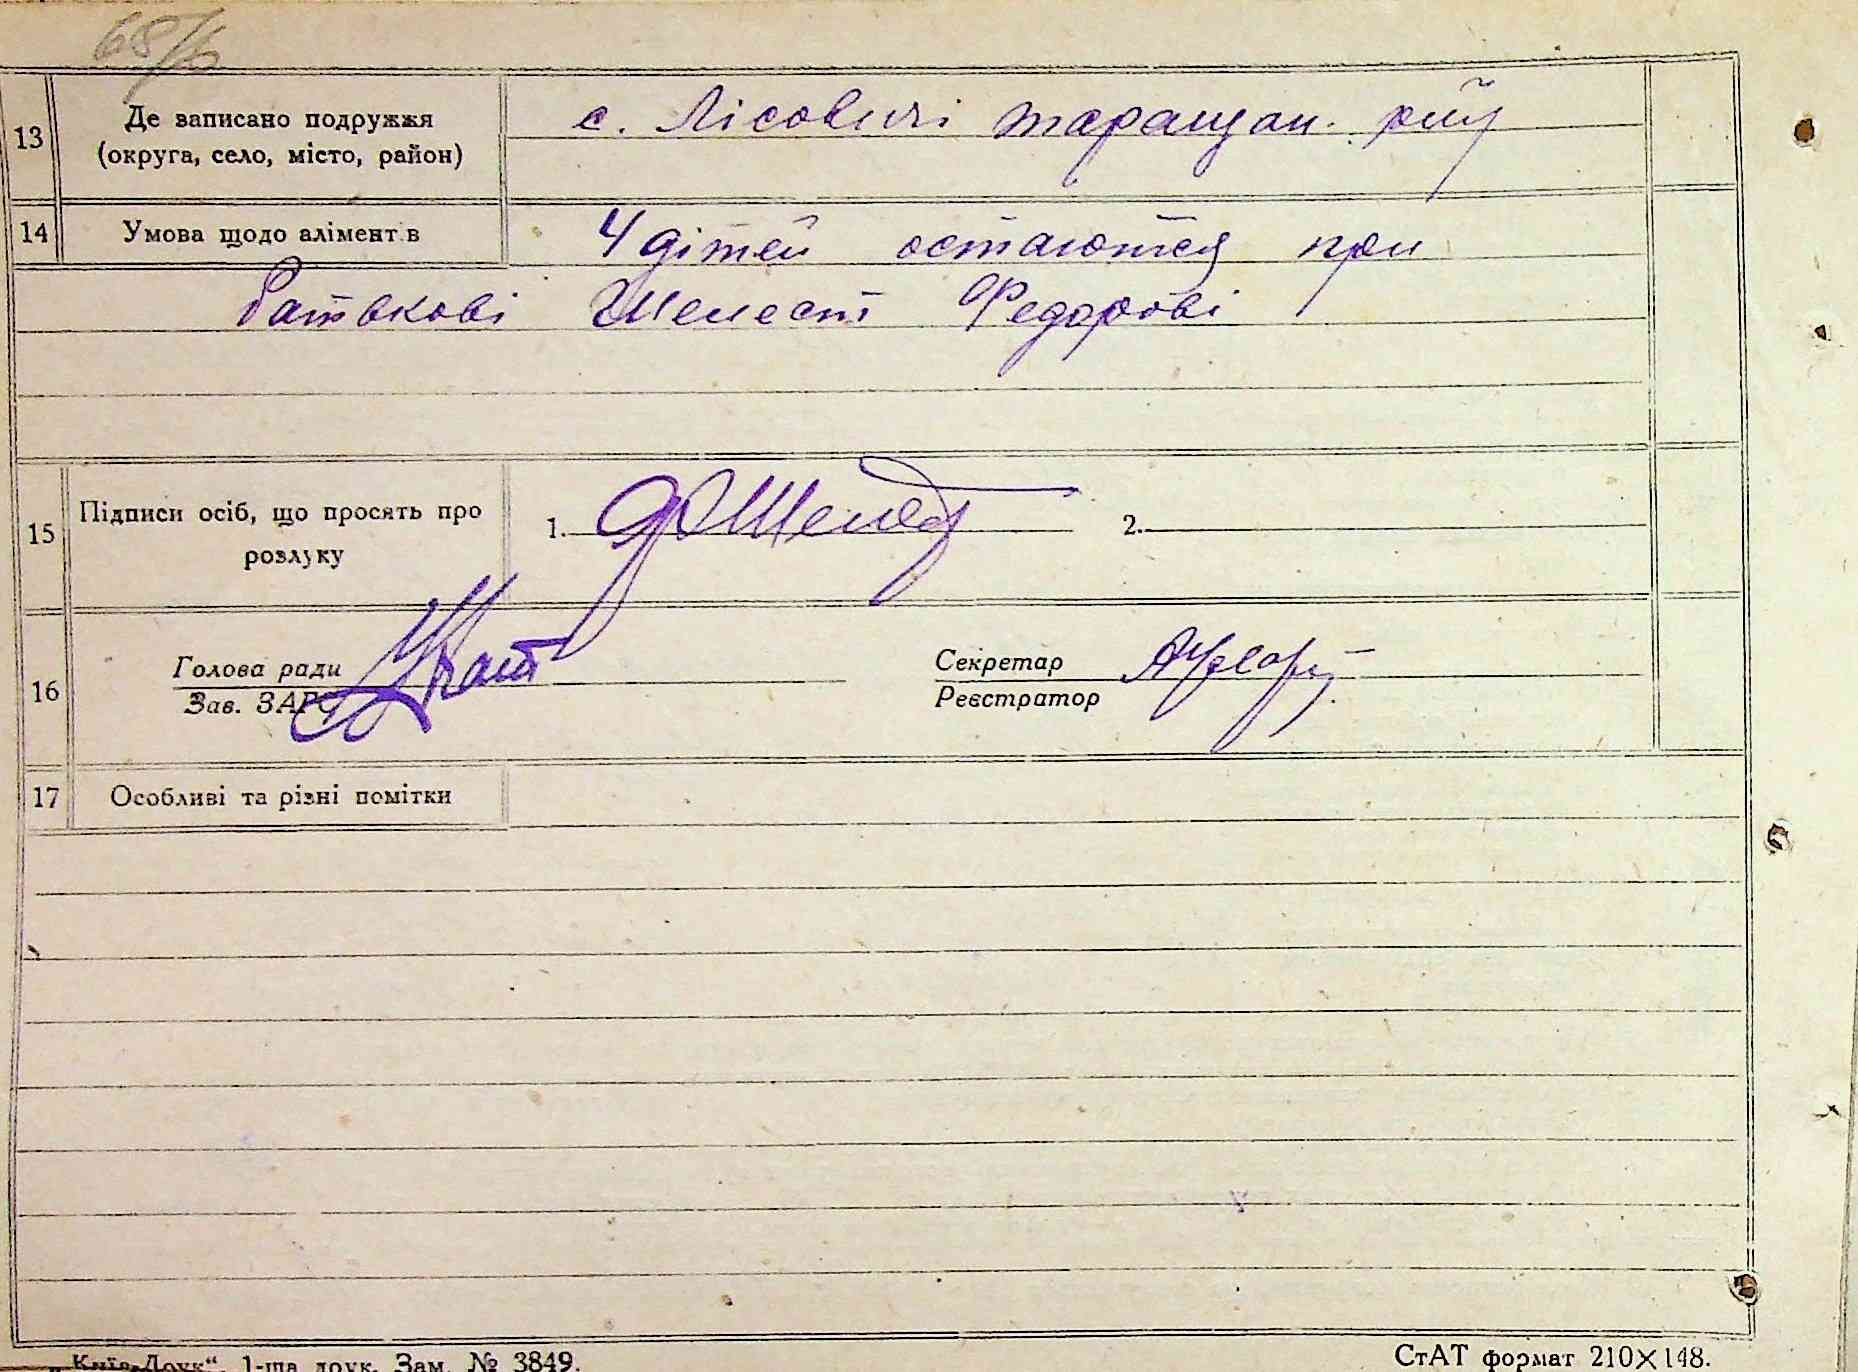 68/6
13
Де записано подружжя
(округа, село, місто, район)
с. Лісовичі таращан. р-ну
14
Умова щодо алімент.в
4 дітей остаются при
батькові Шелест Федорові
15
Підписи осіб, що просять про
розлуку
1.
2.
16
Голова ради
Зав. ЗАГС
Секретар
Реєстратор
17
Особливі та різні помітки
„Київ-Друк“, 1-ша друк. Зам. № 3849.
СтАТ формат 210×148.